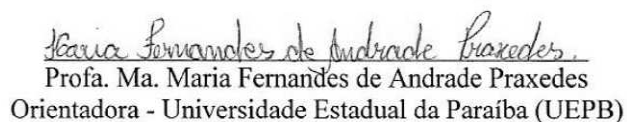 Maria Fernandes de Andrade Praxedes.
Profa. Ma. Maria Fernandes de Andrade Praxedes
Orientadora - Universidade Estadual da Paraíba (UEPB)